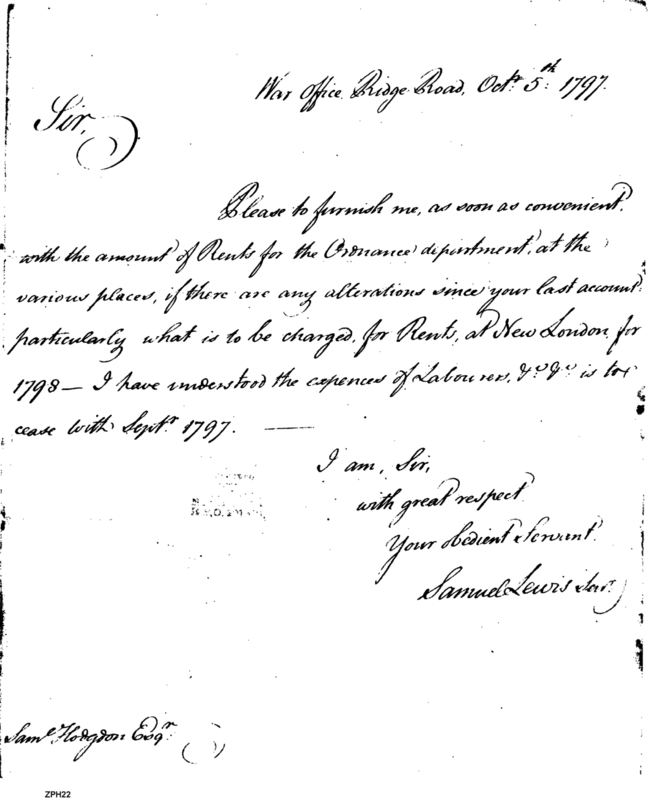 War Office Ridge Road, Octr. 5th: 1797.
Sir,
Please to furnish me, as soon as convenient,
with the amount of Rents for the Ordnance department, at the
various places, if there are any alterations since your last account:
particularly what is to be charged, for Rents, at New London for
1798— I have understood the expences of Labourers, &c. &c. is to
cease with Septr. 1797. —
I am, Sir,
with great respect
Your obedient Servant.
Samuel Lewis Senr.
Saml. Hodgdon Esqr.
ZPH22